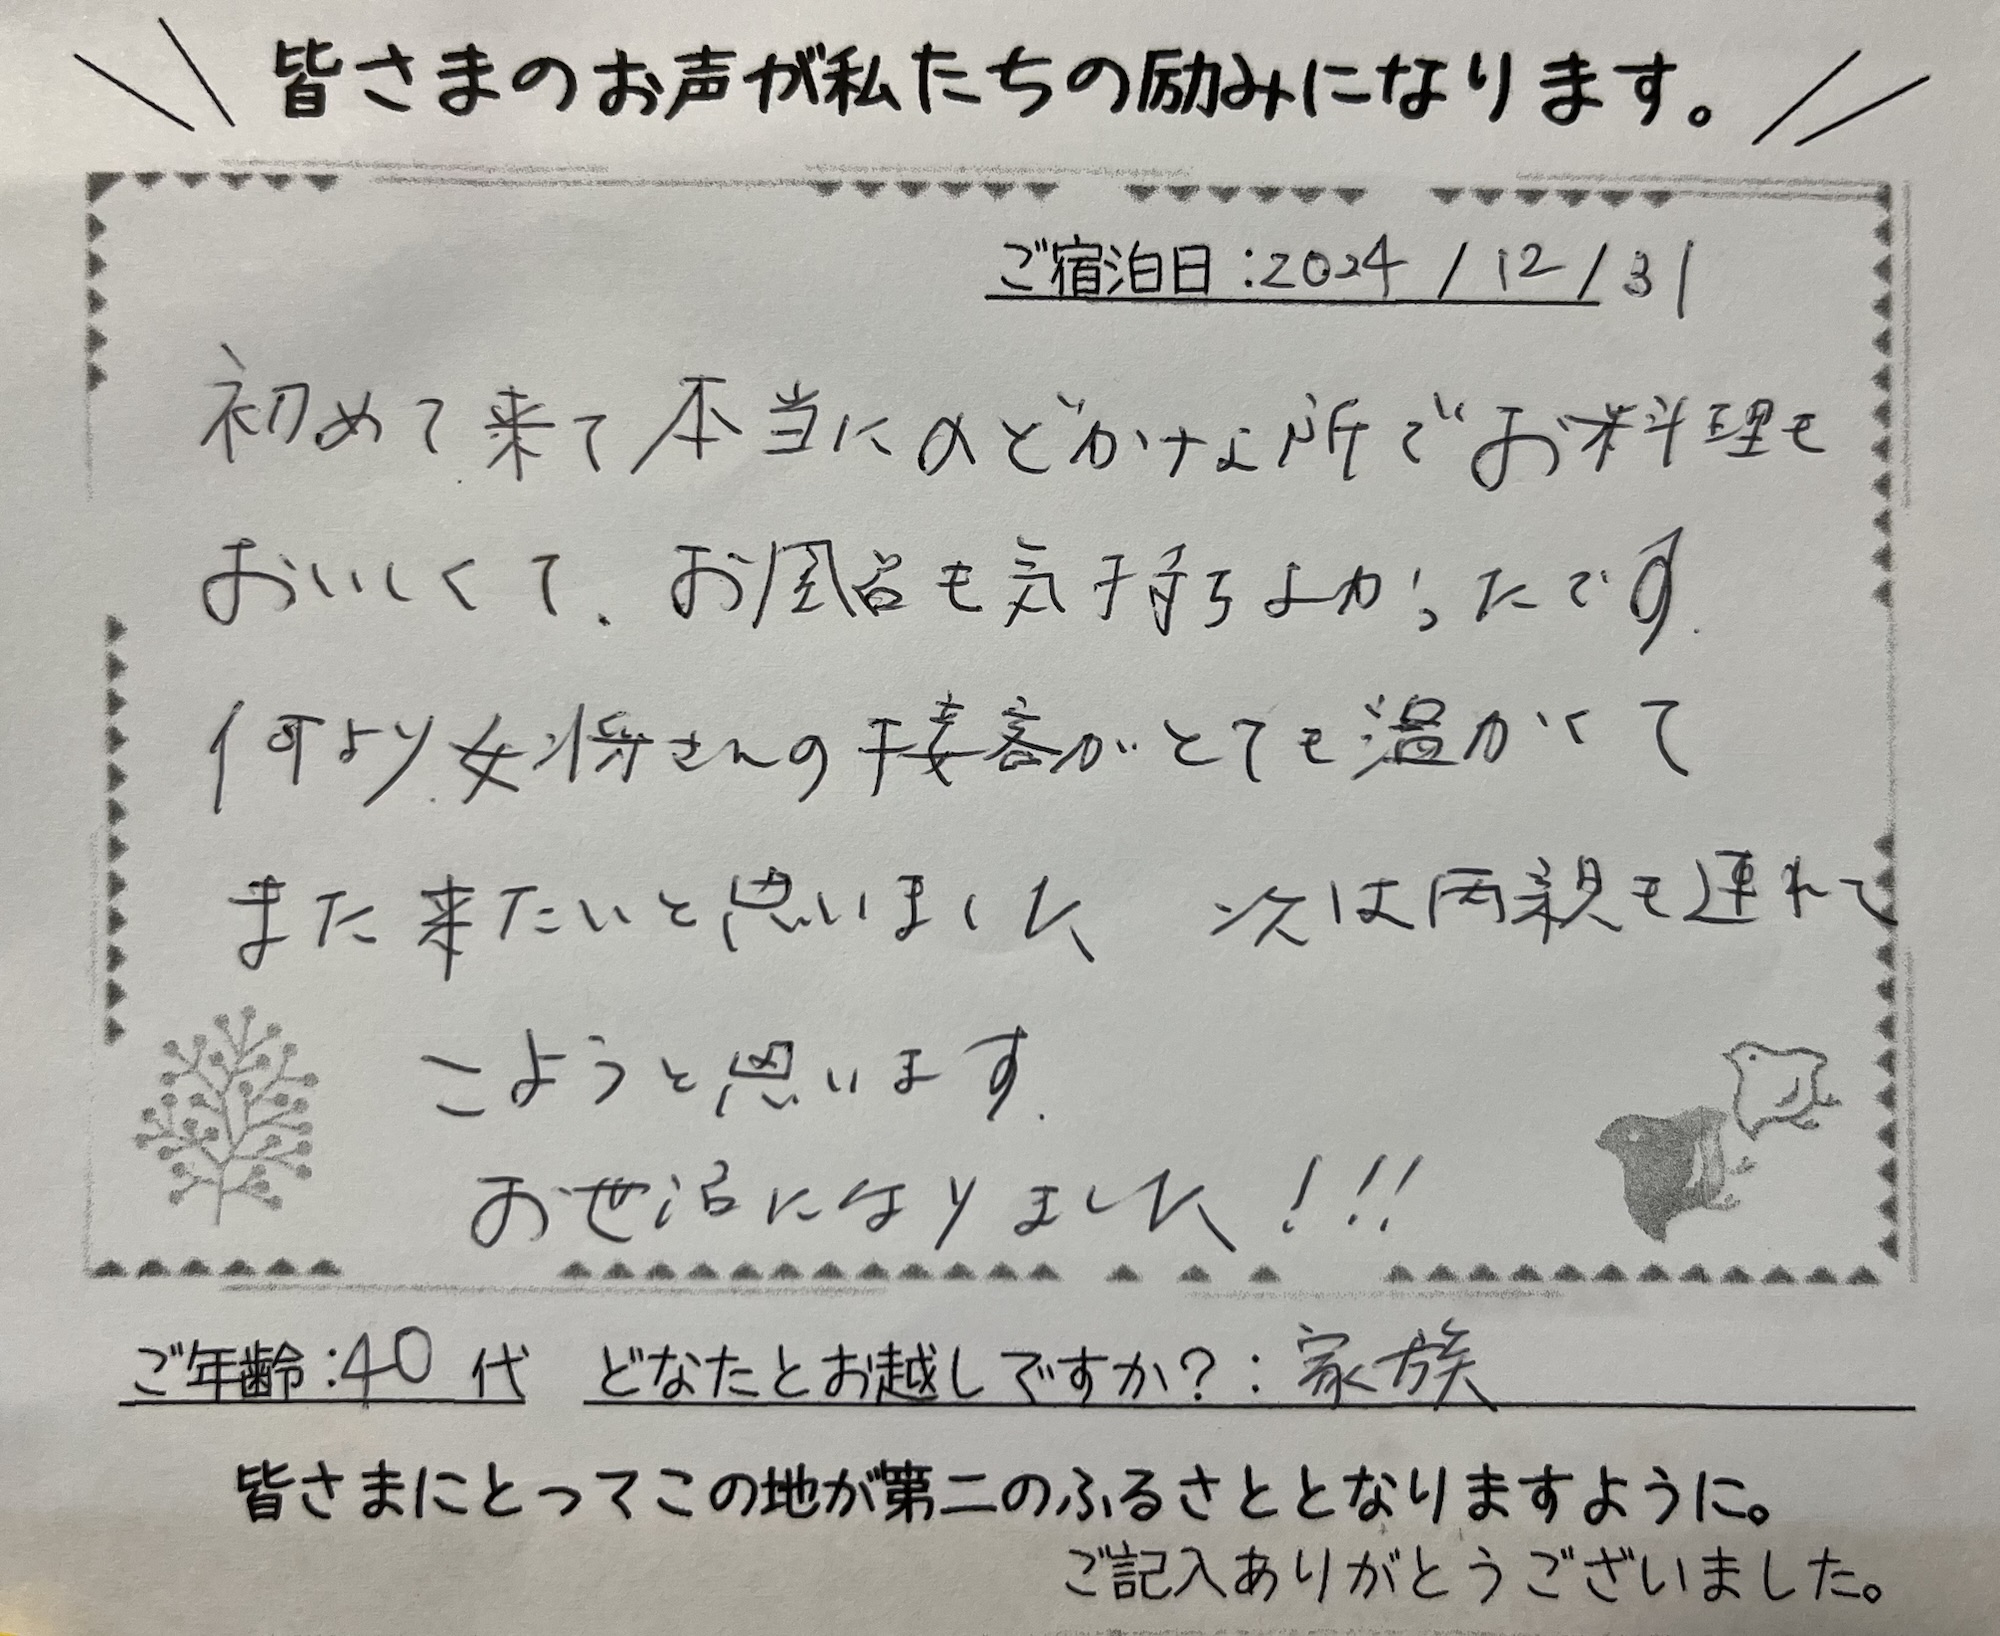 皆さまのお声が私たちの励みになります。
ご宿泊日:2024/12/31
初めて来て本当にのどかな所でお料理も
おいしくて、お風呂も気持ちよかったです。
何より女将さんの接客がとても温かくて
また来たいと思いました 次は両親も連れて
こようと思います。
お世話になりました!!!
ご年齢:40代 どなたとお越しですか?:家族
皆さまにとってこの地が第二のふるさととなりますように。
ご記入ありがとうございました。